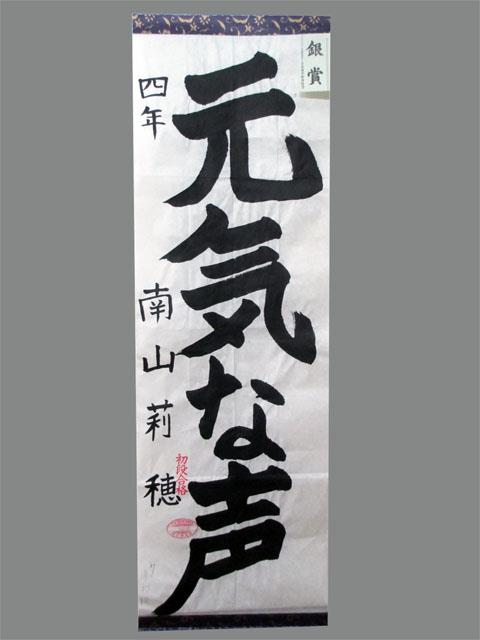 銀賞
元気な声
四年 南山莉穂
初段合格